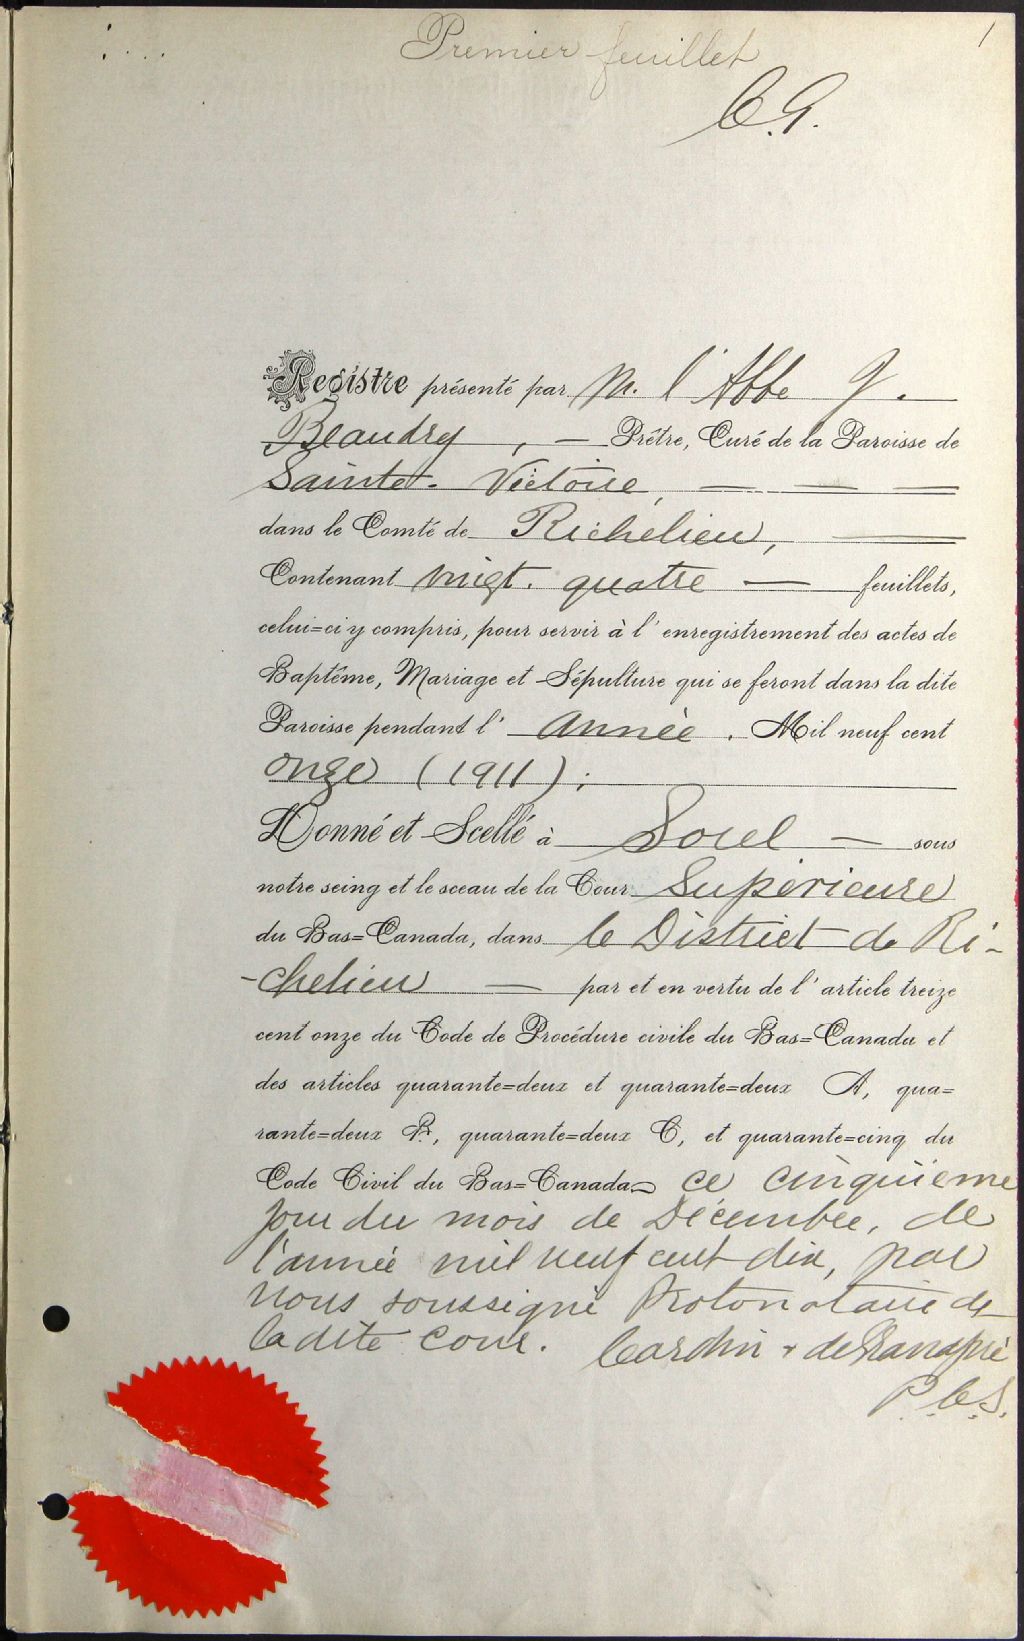 1
Premier feuillet
C. G.
Registre présenté par M. l'Abbe J.
Beaudry, — Prêtre, Curé de la Paroisse de
Sainte-Victoire, — — —
dans le Comté de Richelieu, —
Contenant vingt-quatre — feuillets,
celui=ci y compris, pour servir à l'enregistrement des actes de
Baptême, Mariage et Sépulture qui se feront dans la dite
Paroisse pendant l'année. Mil neuf cent
onze (1911);
Donné et Scellé à Sorel — sous
notre seing et le sceau de la Cour Supérieure
du Bas=Canada, dans le District de Ri-
-chelieu — par et en vertu de l'article treize
cent onze du Code de Procédure civile du Bas=Canada et
des articles quarante=deux et quarante=deux A, qua=
rante=deux B, quarante=deux C, et quarante=cinq du
Code Civil du Bas=Canada ce cinquième
jour du mois de Décembre, de
l'année mil neuf cent dix, par
nous soussigné Protonotaire de
la dite Cour. Cardin & deGrandpré
P. C. S.